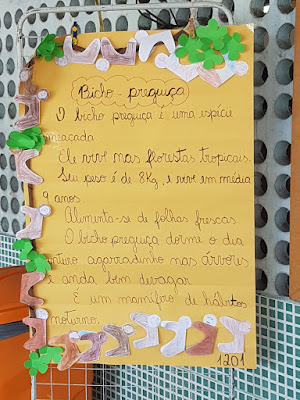 Bicho - preguiça
O bicho preguiça é uma espécie
ameaçada
Ele vive nas florestas tropicais.
Seu peso é de 8Kg, e vive em média
9 anos
Alimenta-se de folhas frescas
O bicho preguiça dorme o dia
inteiro agarradinho nas árvores
e anda bem devagar
É um mamífero de hábitos
noturno.
1201